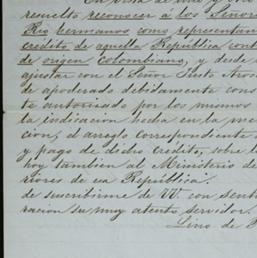 resuelto reconocer a los Señor
Rio Hermanos como representan
credito de aquella Republica cont
de origen colombiano, y desde l
ajustar con el Señor Justo Aros
de apoderado debidamente cons
te autorizado por los mismos
la indicacion hecha en la me
cion, el arreglo correspondiente
y pago de dicho crédito, sobre l
hoy tambien al Ministerio de
riores de esa República".
de suscribirme de VV. con sent
racion su muy atento servidor.
Lino de P